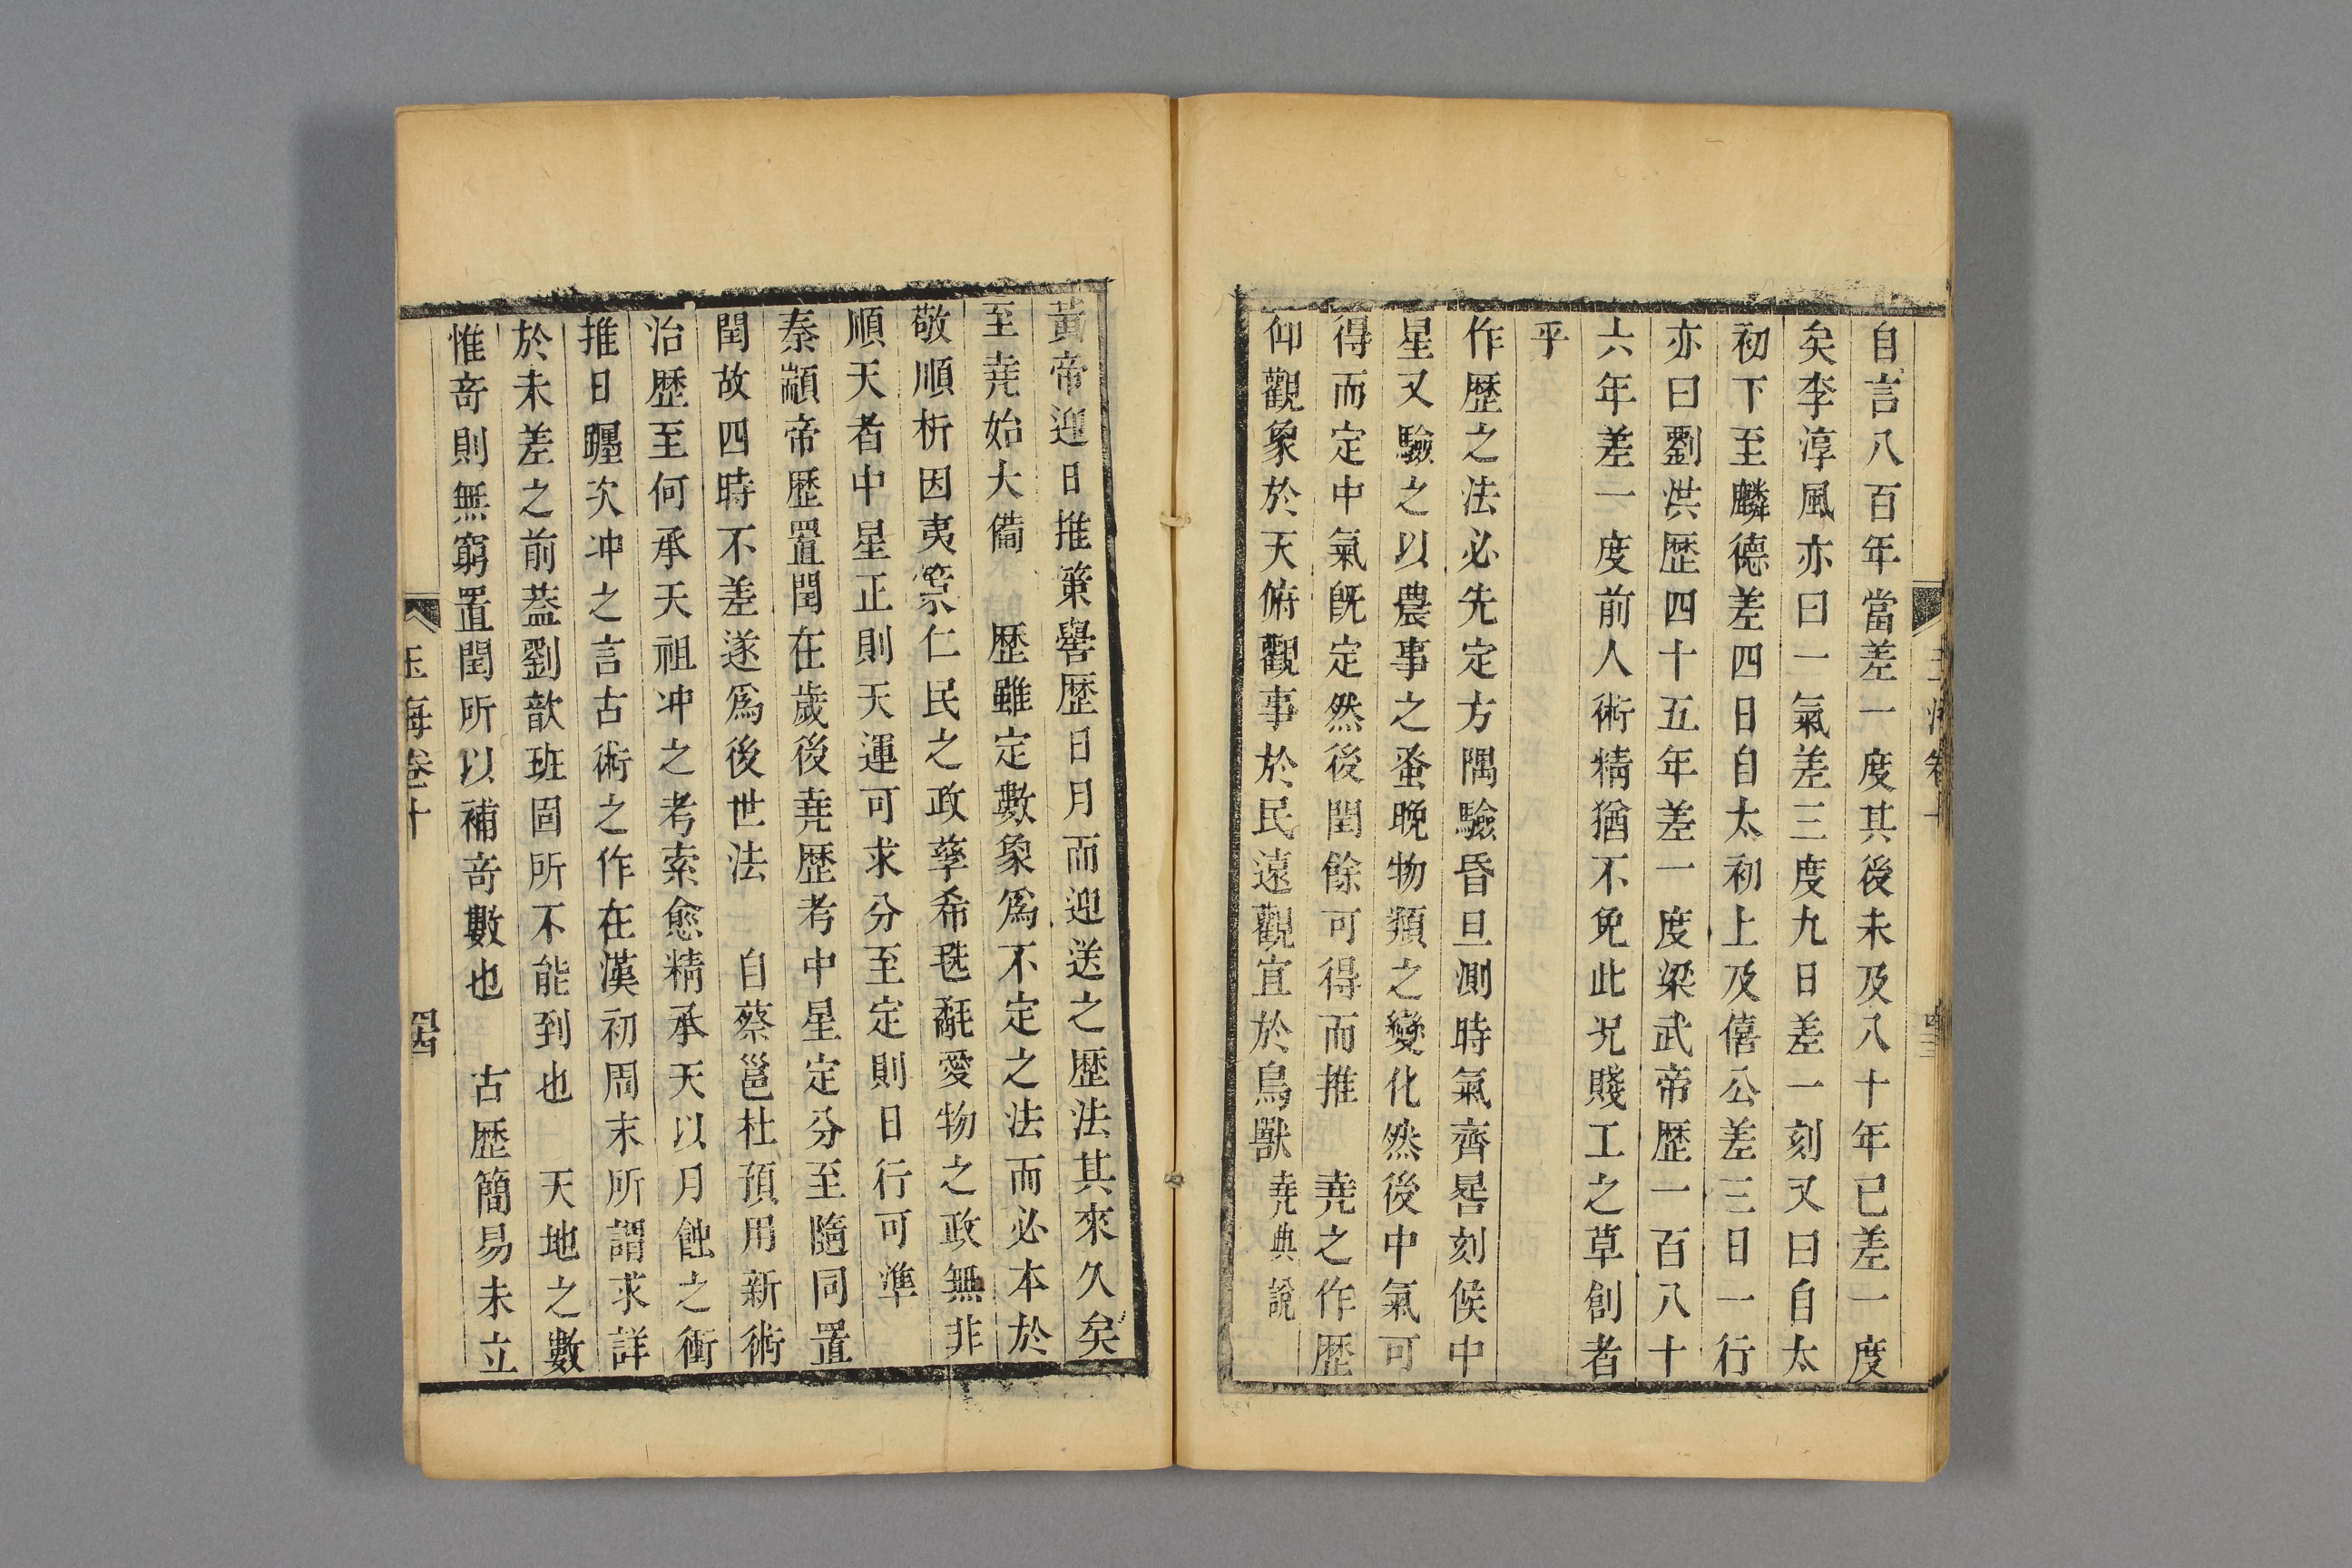 自言八百年當差一度其後未及八十年已差一度
矣李淳風亦曰一氣差三度九日差一刻又曰自太
初下至麟德差四日自太初上及僖公差三日一行
亦曰劉洪歷四十五年差一度梁武帝歷一百八十
六年差一度前人術精猶不免此況賤工之草創者
乎
作歷之法必先定方隅驗昏旦測時氣齊晷刻候中
星又驗之以農事之蚤晚物類之變化然後中氣可
得而定中氣旣定然後閏餘可得而推　堯之作歷
仰觀象於天俯觀事於民遠觀宜於鳥獸堯典說
黃帝迎日推筴嚳歷日月而迎送之歷法其來久矣
至堯始大備　歷雖定數象爲不定之法而必本於
敬順析因夷隩仁民之政孳希毨氄愛物之政無非
順天者中星正則天運可求分至定則日行可準
秦顓帝歷置閏在歲後堯歷考中星定分至隨同置
閏故四時不差遂爲後世法　自蔡邕杜預用新術
治歷至何承天祖冲之考索愈精承天以月蝕之衝
推日躔次冲之言古術之作在漢初周末所謂求詳
於未差之前葢劉歆班固所不能到也　天地之數
惟竒則無窮置閏所以補竒數也　古歷簡易未立
玉海卷十
四十四